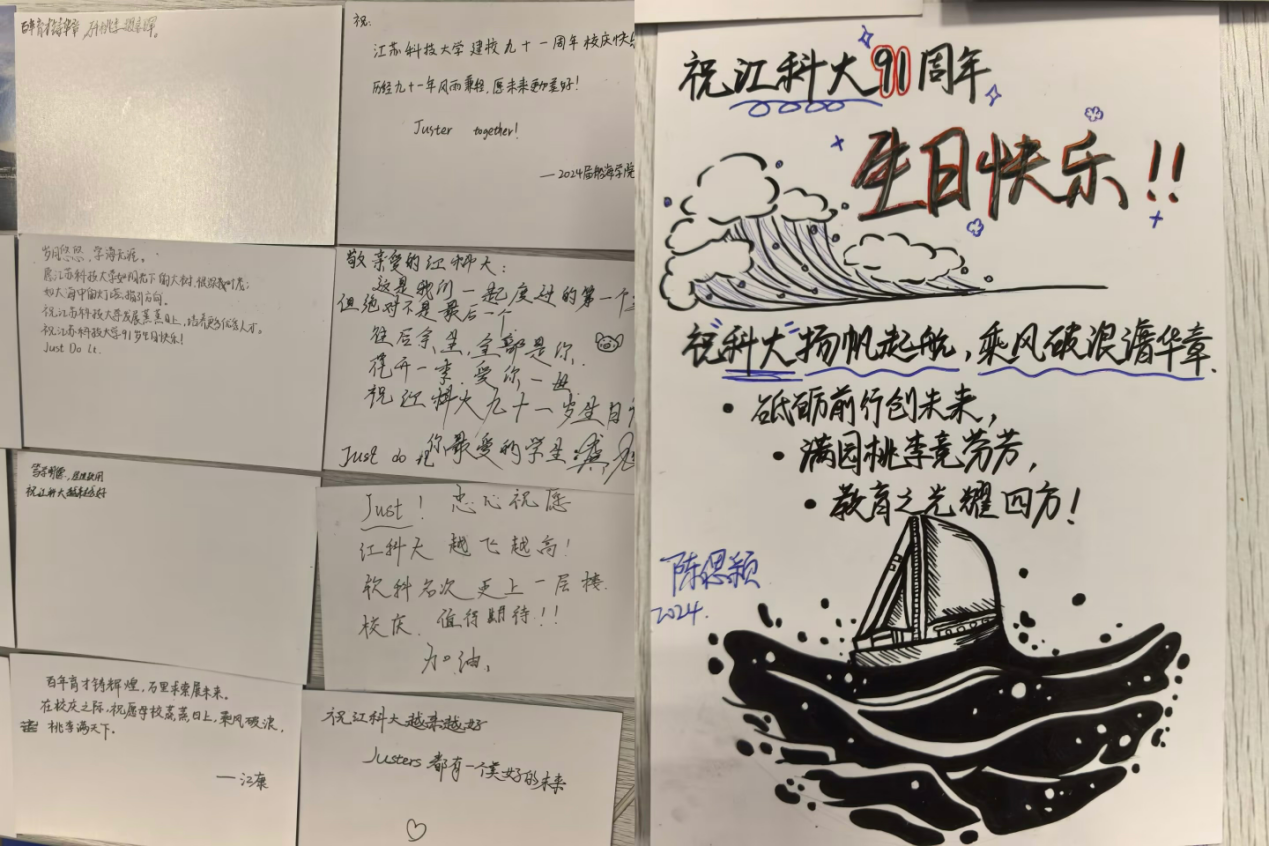 百年育才铸华章
祝:
江苏科技大学建校九十一周年校庆快
历经九十一年风雨兼程,愿未来更加美好!
Juster together!
—2024届船海学院
岁月悠悠,学海无涯。
愿江苏科技大学如阳光下的大树,根深叶茂;
如大海中的灯塔,指引方向。
祝江苏科技大学发展蒸蒸日上,培养更多优秀人才。
祝江苏科技大学91岁生日快乐!
Just Do It.
敬亲爱的江科大:
这是我们一起度过的第一个
但绝对不是最后一个
往后余生,全部是你,
花开一季,爱你一世
祝江科大九十一岁生日
Just do it 你最爱的学生
笃学明德,经世致用
祝江科大越来越好
Just! 忠心祝愿
江科大越飞越高!
软科名次更上一层楼.
校庆 值得期待!!
加油、
百年育才铸辉煌,万里求索展未来。
在校庆之际,祝愿母校蒸蒸日上,乘风破浪,
桃李满天下。
—江康
祝江科大越来越好
Justers 都有一个美好的未来
祝江科大91周年
生日快乐!!
祝"科大"扬帆起航,乘风破浪谱华章.
• 砥砺前行创未来,
• 满园桃李竞芬芳,
• 教育之光耀四方!
陈偲颖
2024.